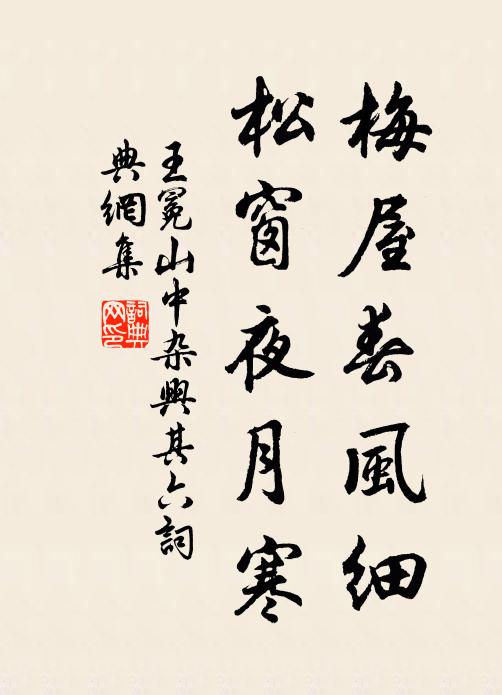 梅屋春風細
松窗夜月寒
王冕山中杂興其六詞
典網集
詞典网印